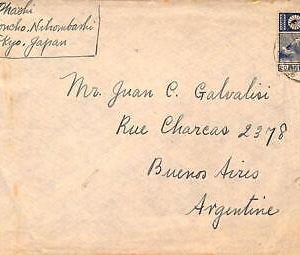 Ohashi
oncho, Nihombashi
kyo, Japan
Mr. Juan C. Galvalisi
Rue Charcas 2378
Buenos Aires
Argentine